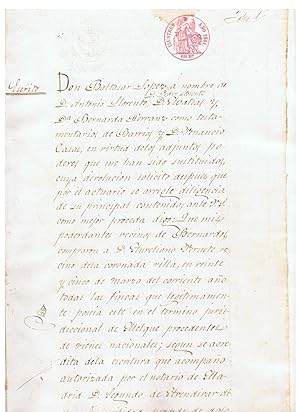 Folio 1
Escrito
Don Baltasar Lopez, á nombre de
D. Antonio Llorente, D. Matias y
Dª Bernarda Herranz como testa-
mentarios de Barrios y D. Venancio
Casas, en virtud de los adjuntos po-
deres que no han sido sustituidos,
cuya devolucion solicito despues que
por el actuario se arregle diligencia
de su principal contenido, ante V.
como mejor proceda digo: Que mis
poderdantes vecinos de Bernardos,
compraron á D. Aureliano ve-
cino de la coronada villa, en veinte
y cinco de Marzo del corriente año
todas las fincas que legitimamente
poseia este en el termino juris-
diccional de Melque procedentes
de vienes nacionales; segun se acre-
dita de la escritura que acompaño
autorizada por el notario de
D. Segundo de